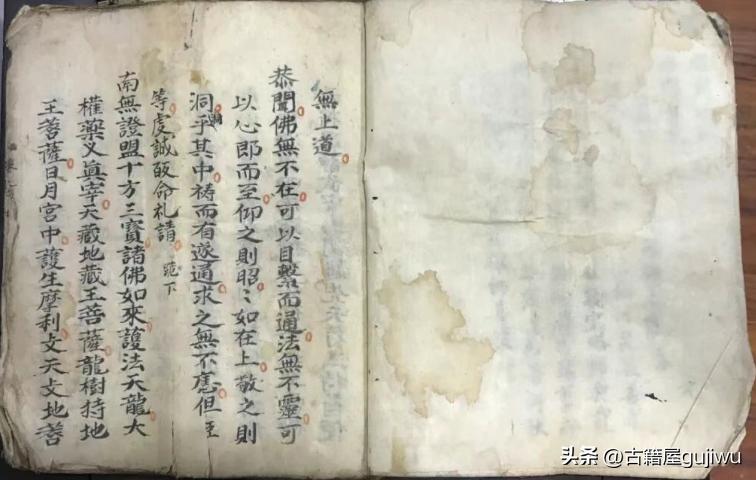 無上道
恭聞佛無不在可以目繫而通法無不靈可
以心即而至仰之則昭〻如在上敬之則
洞乎其中祷而有遂通求之無不應但至
等虔誠皈命札請 下
南無證盟十方三寶諸佛如來護法天龍大
權藥义眞宰天藏地藏王菩薩龍樹持地
王菩薩日月宮中護生摩利攴天攴地菩
头条 @古籍屋gujiwu